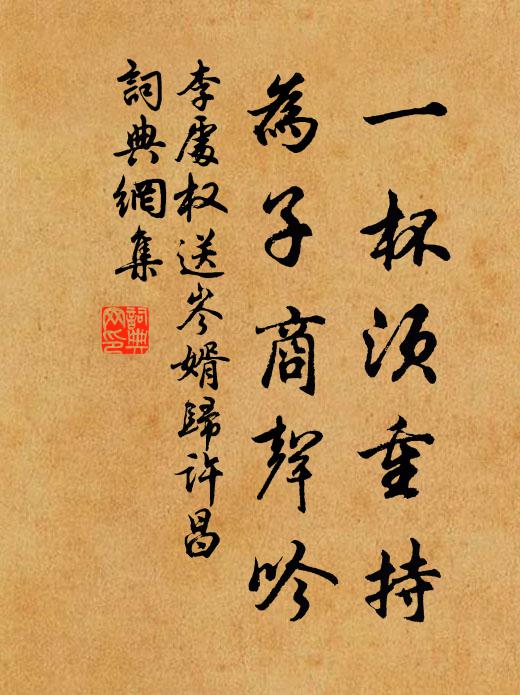 一杯須重持
為子商聲吟
李處权送岑婿歸許昌
詞典網集
詞典
网印